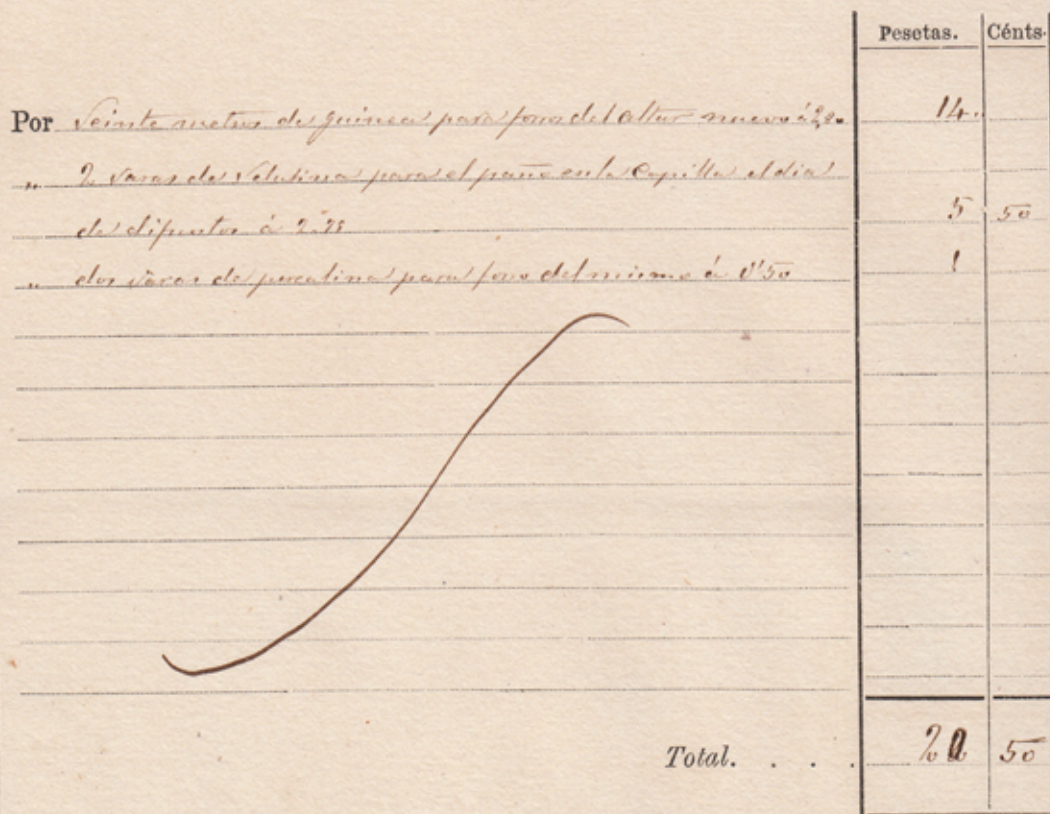 Pesetas. Cénts.
Por Veinte metros de guinea para forro del altar nuevo á 14..
„ 2 varas de velutina para el paño en la Capilla el dia
de difuntos á 2.75 5 50
„ dos varas de percalina para forro del mismo á 0'50 1
Total. . . . 20 50